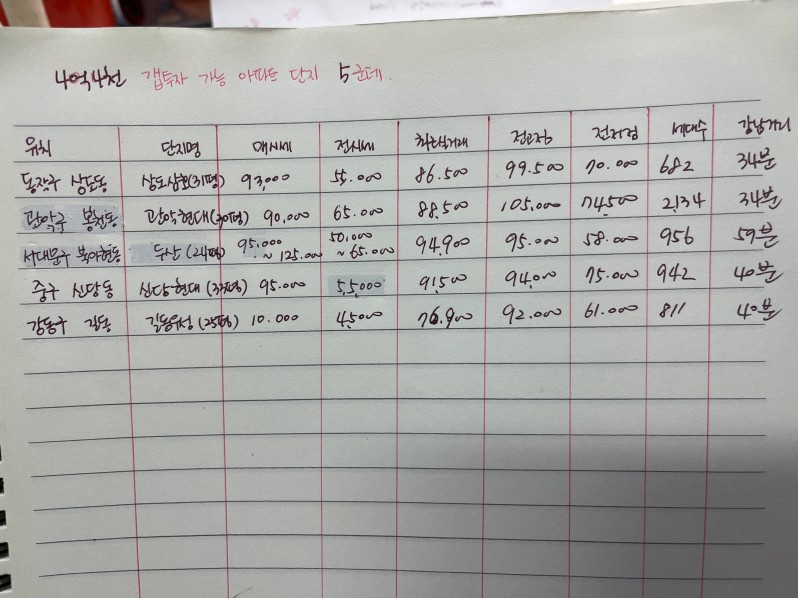 4억4천 갭투자 가능 아파트 단지 5군데.
위치 단지명 매시세 전시세 최근거래 전고점 전저점 세대수 강남거리
동작구 상도동 상도삼호(31평) 93,000 55.000 86.500 99.500 70.000 682 34분
관악구 봉천동 관악현대(30평) 90,000 65.000 88,500 105,000 74,500 2,134 34분
서대문구 북아현동 두산(24평) 95.000 ~125.000 50,000 ~65.000 94,900 95.000 58.000 956 59분
중구 신당동 신당현대(33평) 95.000 55,000 91,500 94,000 75.000 942 40분
강동구 길동 길동우성(25평) 10.000 45,000 76.900 92.000 61.000 811 40분